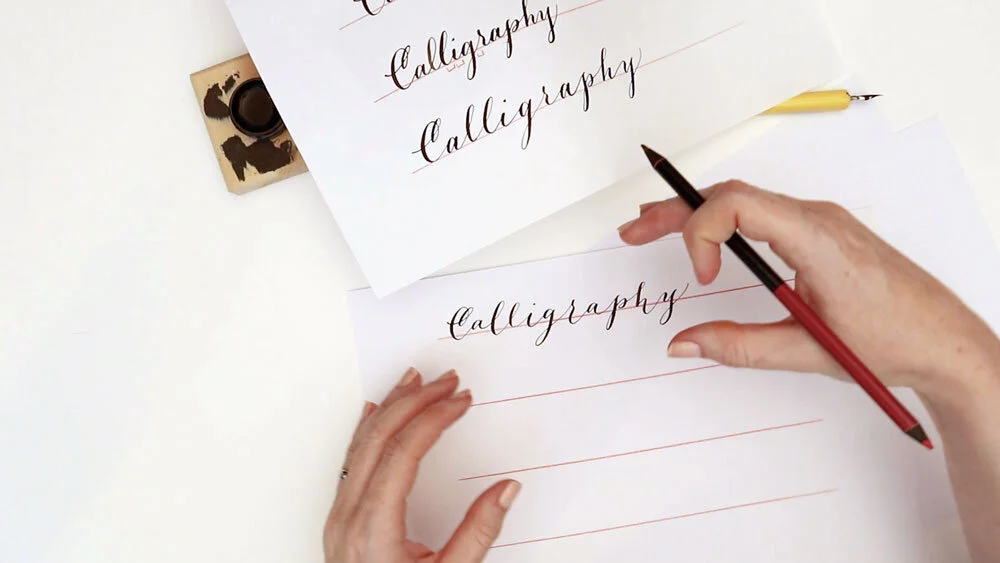 Calligraphy
Calligraphy
Calligraphy